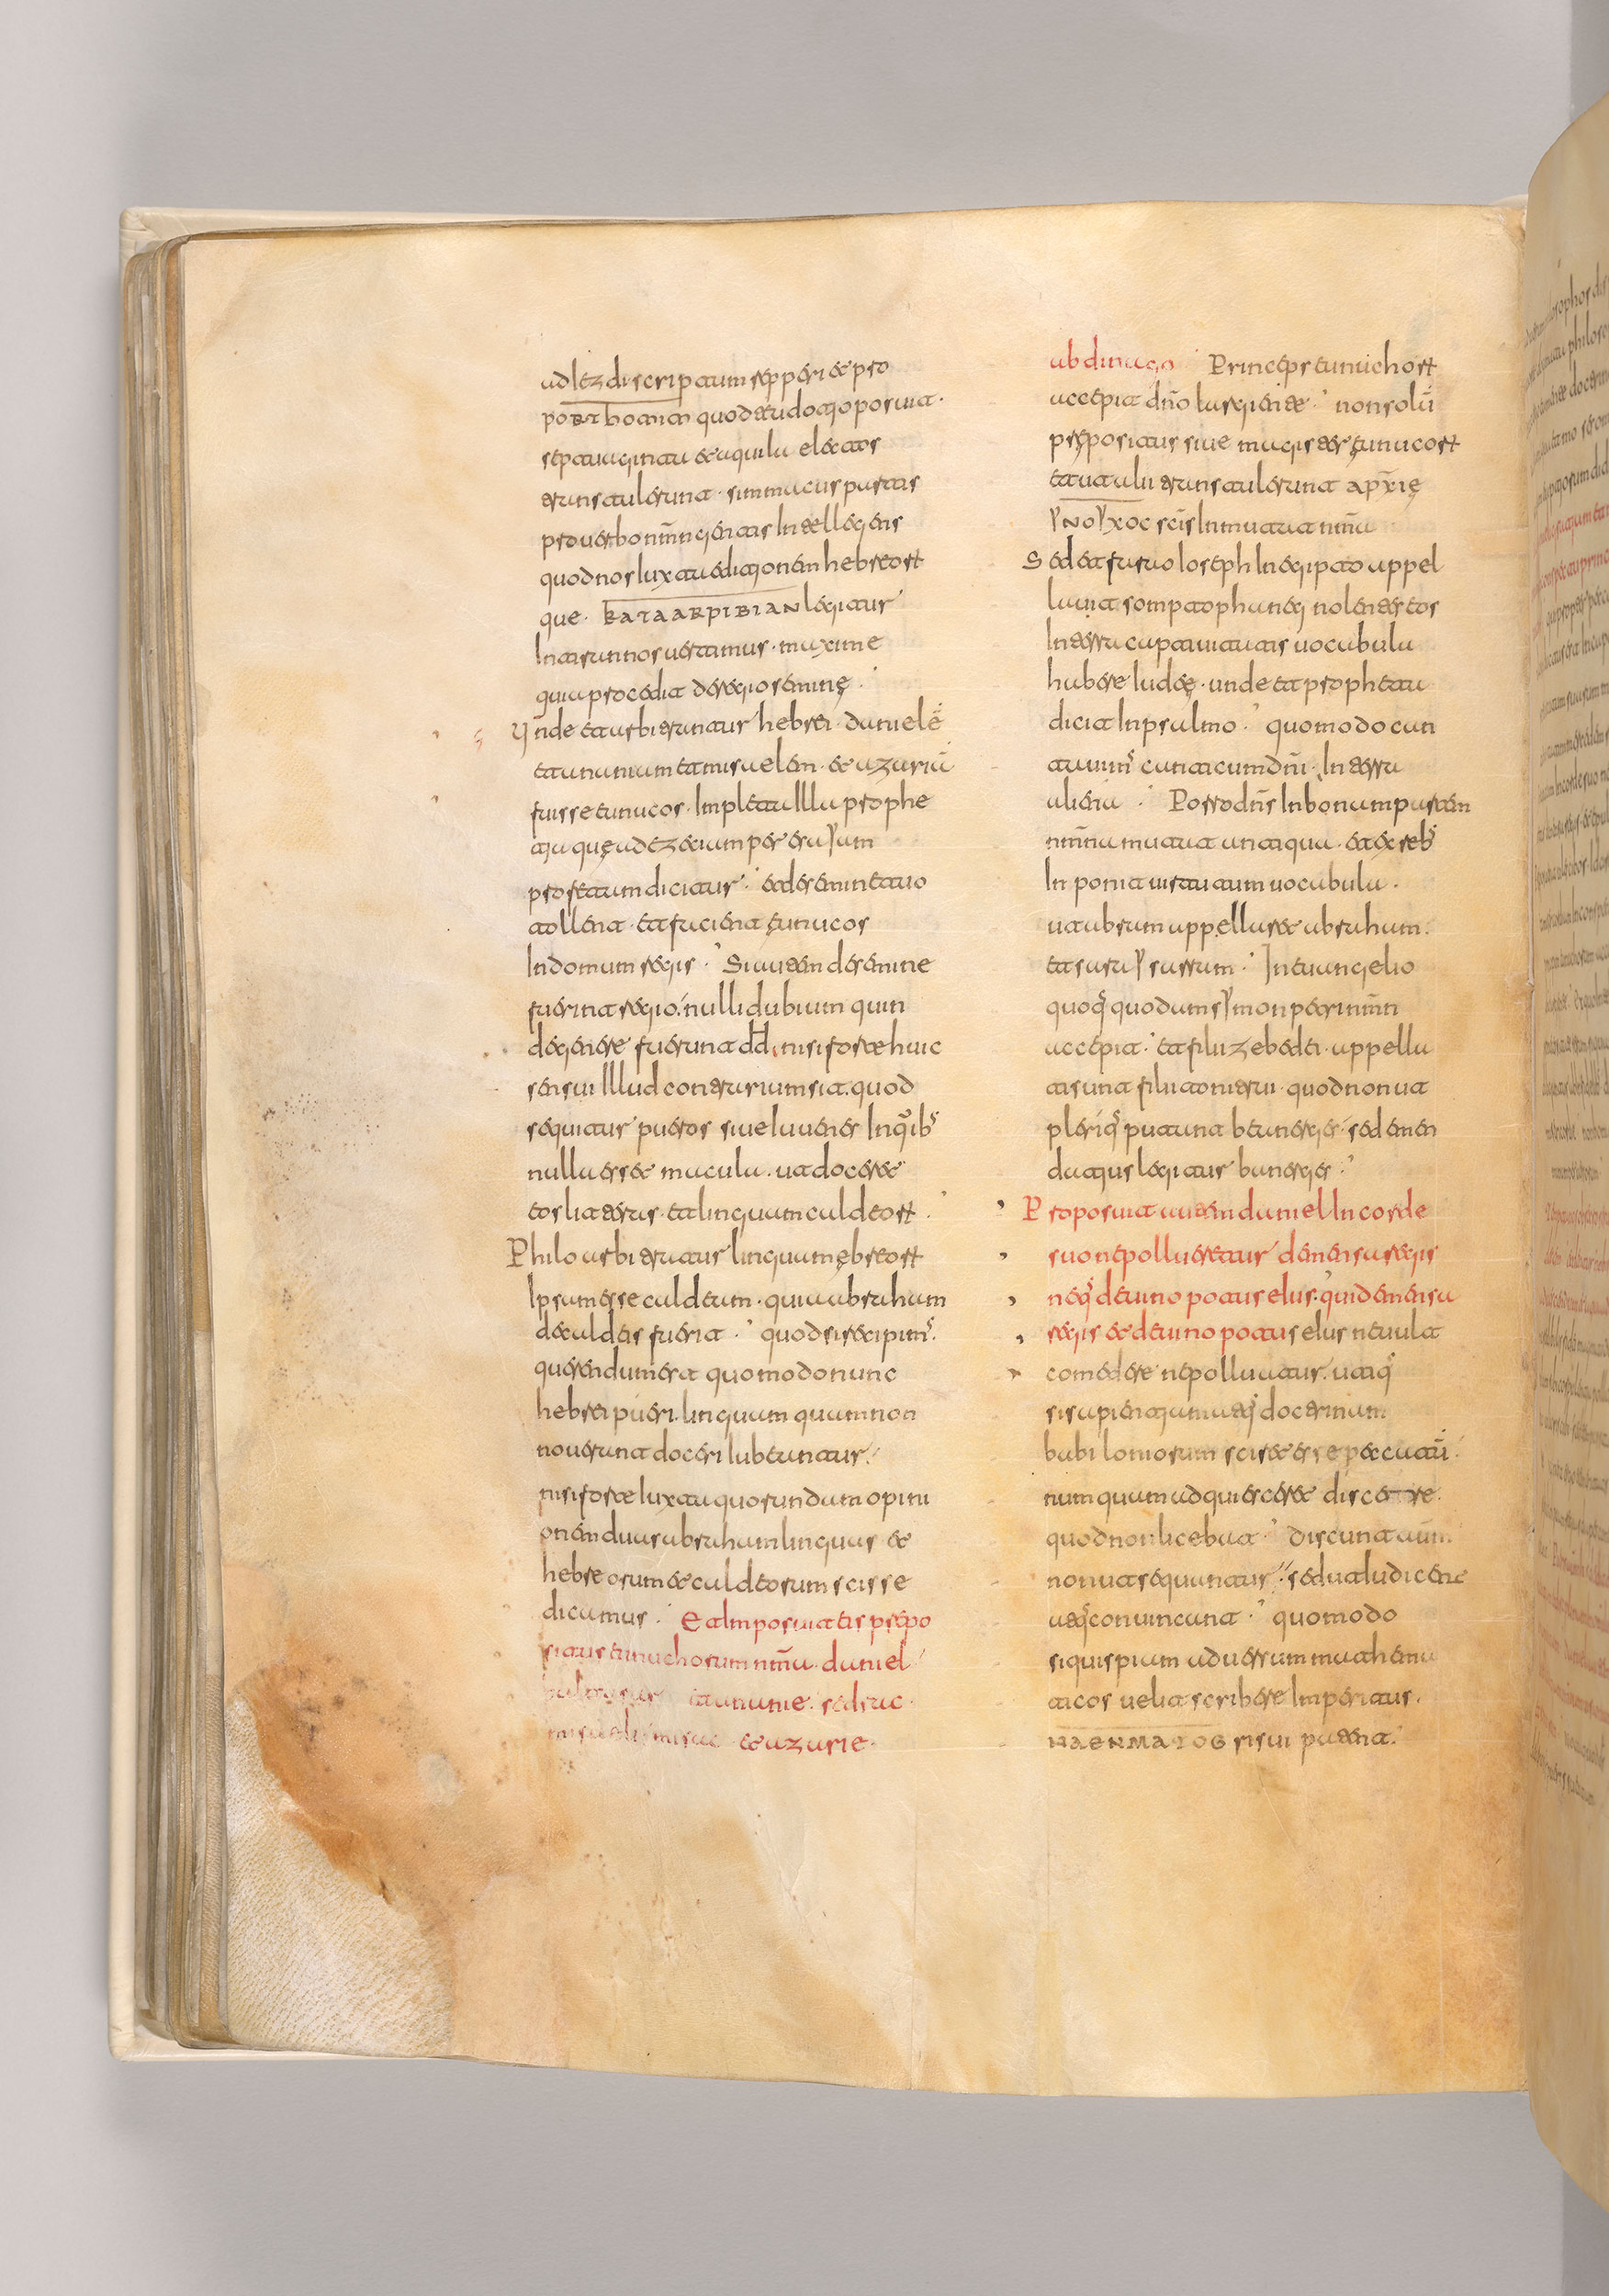 adiez discriptum repperi et pro
PORTHOMIM quod teudotio posuit·
septuaginta et aquila electos
transtulerunt· simmacus partus
pro uerbo nr̄m ingentis Intellegens
quod nos Iuxta editionem hebreorum
que· KATAARPIBIAN legitur
In tirannos uertamus· maxime
quia procedit de regio semine·
Unde et arbitrantur hebrei· danielē
et ananiam et misaelem· et azariā
fuisse eunucos· Impleta Illa prophe
tia que ad ezeciam per esayam
profetam dicitur· et de semine tuo
tollent· et facient eunucos
In domum regis· Si autem de semine
fuerint regio· nulli dubium quin
de genere fuerunt dd̄· nisi forte huic
sensui Illud contrarium sit· quod
sequitur pueros siue Iuuenes In quibꝰ
nulla esset macula· ut doceret
eos literas· et linguam caldeorum·
Philo arbitratur linguam ebreorum
Ipsam esse caldeam· quia abraham
de caldeis fuerit· quod si recipimꝰ·
querendum est quomodo nunc
hebrei pueri· linguam quam non
nouerunt doceri Iubeantur·
nisi forte Iuxta quorundam opini
onem duas abraham linguas et
hebreorum et caldeorum scisse
dicamus· Et Imposuit eis prepo
situs eunuchorum nm̄na· daniel
baltassar ananie· sedrac·
misaeli misac et azarie·
abdinago Princeps eunuchorum
accepit dn̄o Iasgienet· non solū
prepositus siue magister eunucorum
et ut alii transtulerunt ΑΡΧΙΕ
ΥΝΟΥΧΟC sc̄is Inmutat nm̄na
Sed et farao Ioseph In egipto appel
lauit somptophanec nolentes eos
In terra captiuitatis uocabula
habere Iudee· unde et propheta
dicit In psalmo· quomodo can
tauimꝰ canticum dn̄i· In terra
aliena· Porro dn̄s In bonum partem
nm̄na mutat antiqua· et ex rebꝰ
In ponit uirtutum uocabula·
ut abram appellaret abraham·
et sarai sarram· In euangelio
quoqꝰ quodam symon petri nm̄n
accepit· et filii zebedei· appella
ti sunt filii tonitrui· quod non ut
pleriqꝰ putant beuneregis· sed emen
datius legitur baneregis·
Proposuit autem daniel In corde
suo ne pollueretur de mensa regis
neqꝰ de uino potus eius· qui de mensa
regis et de uino potus eius neuult
comedere ne polluatur· utiqꝰ
si sapientiam atqꝰ doctrinam
babiloniorum sciret esse peccatū·
numquam adquiesceret discere
quod non licebat· discunt autem
non ut sequantur· sed ut Iudicent
atqꝰ conuincant· quomodo
si quispiam aduersum mathema
ticos uelit scribere Imperitus·
HAENMATOG risui pateat·